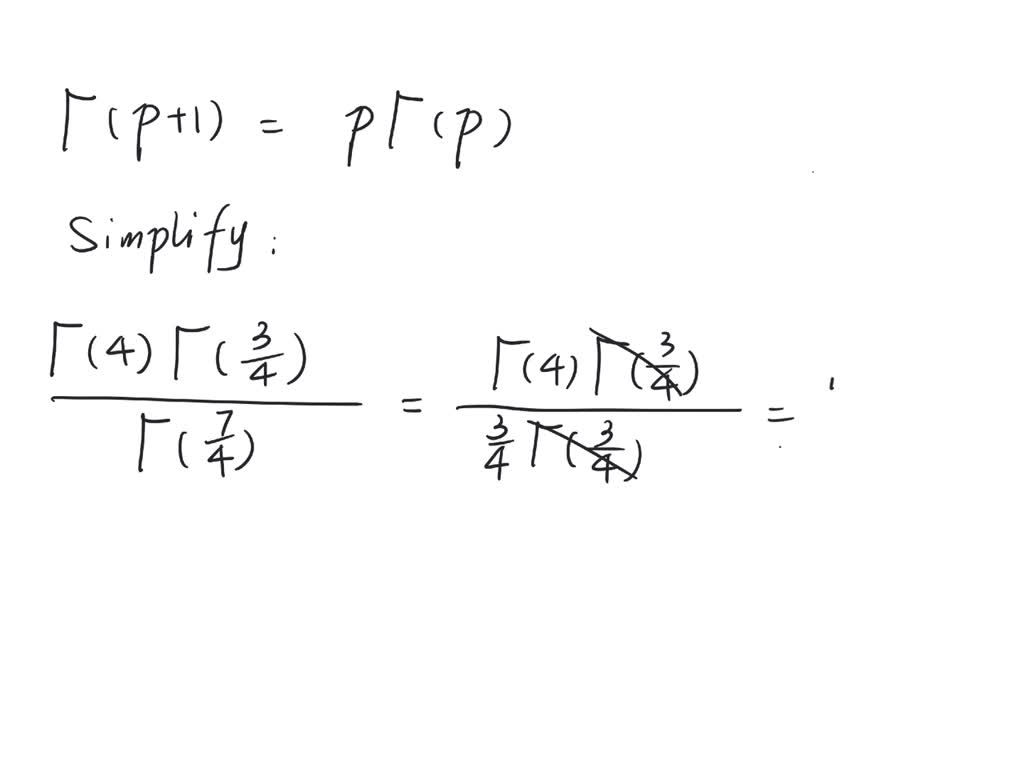 Γ(p+1) = pΓ(p)
Simplify:
Γ(4) Γ(3/4) / Γ(7/4) = Γ(4) Γ(3/4) / 3/4 Γ(3/4) =